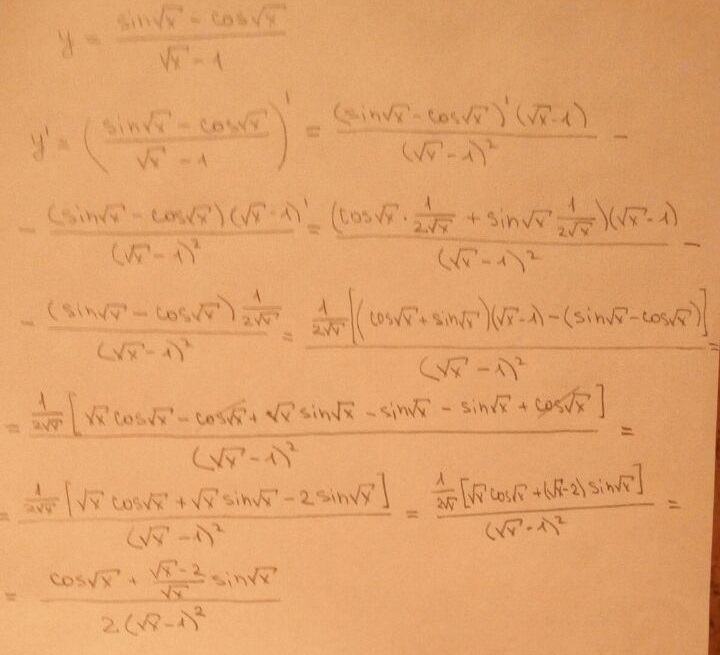 y = (sin√x - cos√x)/(√x - 1)
y' = ((sin√x - cos√x)/(√x - 1))' = ((sin√x - cos√x)'(√x - 1))/(√x - 1)² -
- ((sin√x - cos√x)(√x - 1)')/(√x - 1)² = ((cos√x · 1/(2√x) + sin√x 1/(2√x))(√x - 1))/(√x - 1)² -
- ((sin√x - cos√x) 1/(2√x))/(√x - 1)² = (1/(2√x) [(cos√x + sin√x)(√x - 1) - (sin√x - cos√x)])/(√x - 1)² =
= (1/(2√x) [√x cos√x - cos√x + √x sin√x - sin√x - sin√x + cos√x])/(√x - 1)² =
= (1/(2√x) [√x cos√x + √x sin√x - 2 sin√x])/(√x - 1)² = (1/(2√x) [√x cos√x + (√x - 2) sin√x])/(√x - 1)² =
= (cos√x + (√x - 2)/√x sin√x)/(2(√x - 1)²)